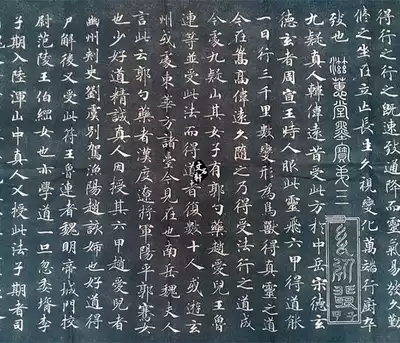 得行行之既速致通降而靈氣易發久勤
修之坐在立亡長生久視變化萬端行廚卒
致也
滋蕙堂墨寶第二
九疑真人韓偉遠昔受此方於中岳宋德玄
德玄者周宣王時人服此靈飛六甲得道能
一日行三千里數變形為鳥獸得真靈之道
今在嵩高偉遠久隨之乃得受法行之道成
今處九疑山其女子有郭勺藥趙愛兒王魯
連等並受此法而得道者復數十人或遊玄
州或處東華方諸臺今見在也南岳魏夫人
言此云郭勺藥者漢度遼將軍陽平郭騫女
也少好道精誠真人因授其六甲趙愛兒者
幽州刺史劉虞別駕漁陽趙該姊也好道得
尸解後又受此符王魯連者魏明帝城門校
尉范陵王伯綱女也亦學道一旦忽委婿李
子期入陸渾山中真人又受此法子期者司